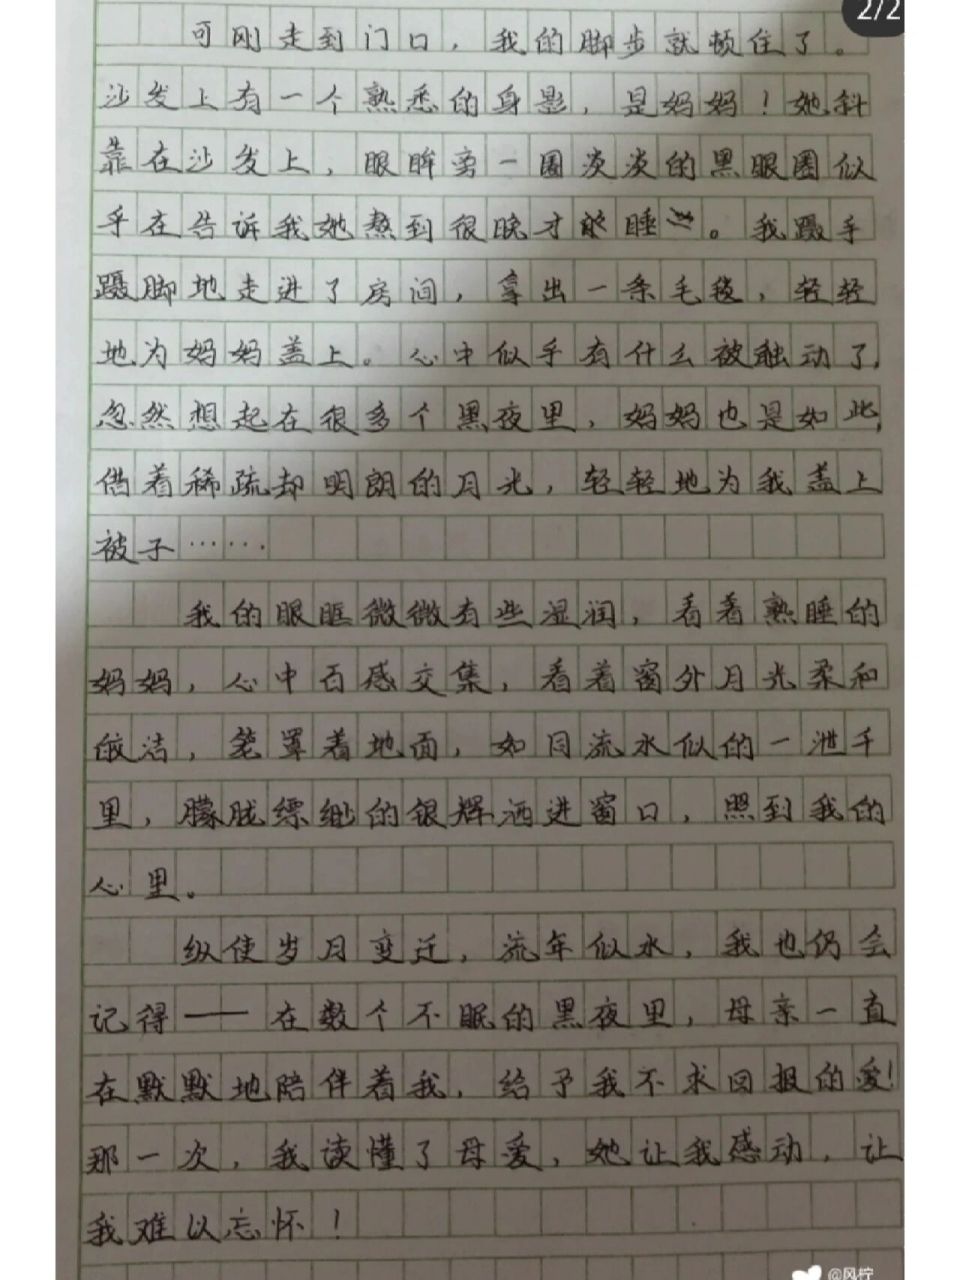 2/2
可刚走到门口，我的脚步就顿住了。
沙发上有一个熟悉的身影，是妈妈！她斜
靠在沙发上，眼眸旁一圈淡淡的黑眼圈似
乎在告诉我她熬到很晚才睡。我蹑手
蹑脚地走进了房间，拿出一条毛毯，轻轻
地为妈妈盖上。心中似乎有什么被触动了，
忽然想起在很多个黑夜里，妈妈也是如此，
借着稀疏却明朗的月光，轻轻地为我盖上
被子……
我的眼眶微微有些湿润，看着熟睡的
妈妈，心中百感交集，看着窗外月光柔和
皎洁，笼罩着地面，如同流水似的一泄千
里，朦胧缥缈的银辉洒进窗口，照到我的
心里。
纵使岁月变迁，流年似水，我也仍会
记得——在数个不眠的黑夜里，母亲一直
在默默地陪伴着我，给予我不求回报的爱！
那一次，我读懂了母爱，她让我感动，让
我难以忘怀！
@风柠